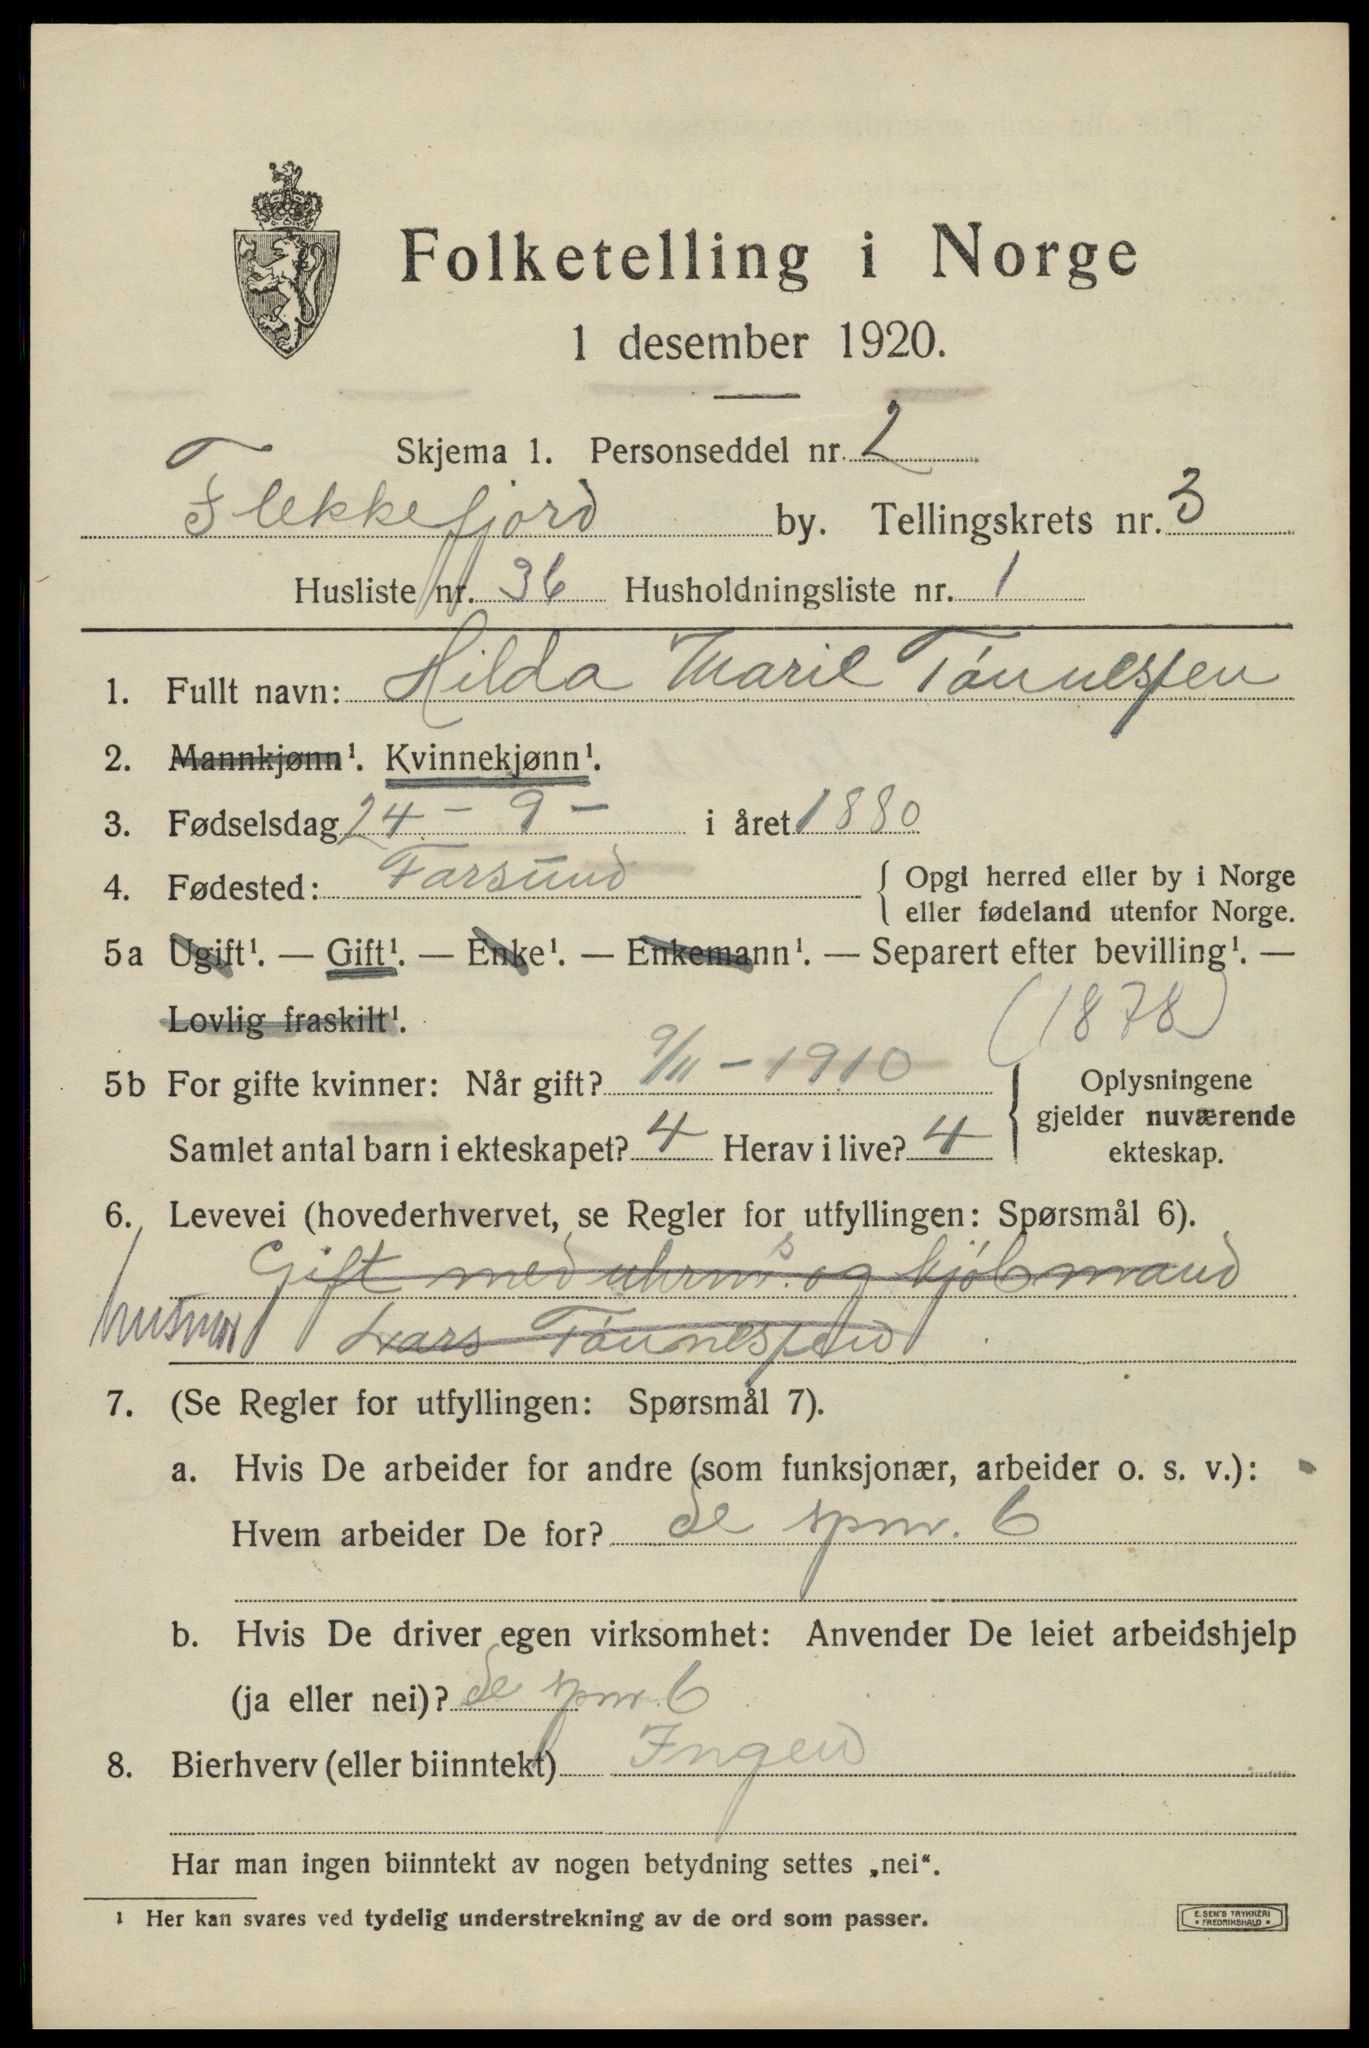 Folketelling i Norge
1 desember 1920.
Skjema 1. Personseddel nr. 2
Flekkefjord by. Tellingskrets nr. 3
Husliste nr. 36 Husholdningsliste nr. 1
1. Fullt navn: Hilda Marie Tønnessen
2. Mannkjønn¹. Kvinnekjønn¹.
3. Fødselsdag 24 - 9 - i året 1880
4. Fødested: Farsund { Opgl herred eller by i Norge
eller fødeland utenfor Norge.
5a Ugift¹. — Gift¹. — Enke¹. — Enkemann¹. — Separert efter bevilling¹. —
Lovlig fraskilt¹. (1878)
5b For gifte kvinner: Når gift? 9/11 - 1910
Samlet antal barn i ekteskapet? 4 Herav i live? 4
Oplysningene
gjelder nuværende
ekteskap.
6. Levevei (hovederhvervet, se Regler for utfyllingen: Spørsmål 6).
Gift med uhrm. og kjøbmand
husmor Lars Tønnessen
7. (Se Regler for utfyllingen: Spørsmål 7).
a. Hvis De arbeider for andre (som funksjonær, arbeider o. s. v.):
Hvem arbeider De for? Se spm. 6
b. Hvis De driver egen virksomhet: Anvender De leiet arbeidshjelp
(ja eller nei)? Se spm. 6
8. Bierhverv (eller biinntekt) Ingen
Har man ingen biinntekt av nogen betydning settes „nei“.
¹ Her kan svares ved tydelig understrekning av de ord som passer.
E. SEM'S TRYKKERI
* FREDRIKSHALD *